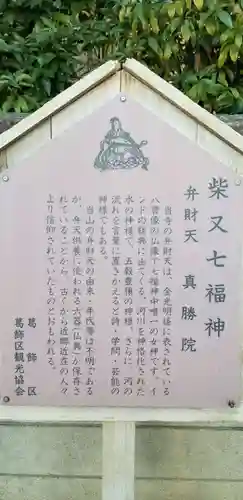 柴又七福神
弁財天　真勝院
当寺の弁財天は、金光明経に表されている
八臂像の仏像で七福神中唯一の女神です。イ
ンドの辞典に出てくる、河川を神格化された
水の神様で、五穀豊穣の神様、さらに、河の
流れを言葉に置きかえると詩・学問・芸能の
神様でもある。
当山の弁財天の由来・年代等は不明である
が、弁天供養に使われる六器（仏具）が保存さ
れていることから、古くから近郷近在の人々
より信仰されていたものとおもわれる。
葛飾区
葛飾区観光協会